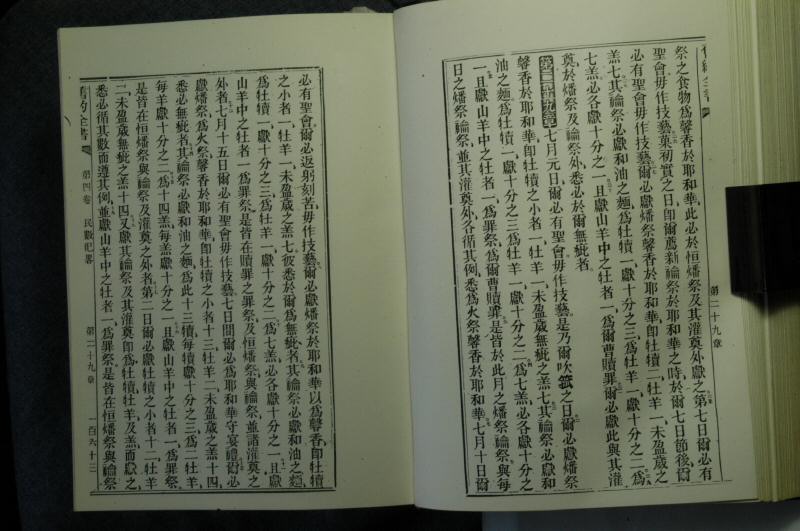 舊約全書
祭之食物爲馨香於耶和華此必於恒燔祭及其灌奠外獻之第七日爾必有
聖會毋作技藝菓初實之日卽爾薦新禴祭於耶和華之時於爾七日節後爾
必有聖會毋作技藝爾必獻燔祭馨香於耶和華卽牡犢二牡羊一未盈歲之
羔七其禴祭必獻和油之麵爲牡犢一獻十分之三爲牡羊一獻十分之二爲
七羔必各獻十分之一且獻山羊中之牡者一爲爾曹贖罪爾必獻此與其灌
奠於燔祭及禴祭外悉必於爾無疵者
第二十九章七月元日爾必有聖會毋作技藝是乃爾吹號之日爾必獻燔祭
馨香於耶和華卽牡犢之小者一牡羊一未盈歲無疵之羔七其禴祭必獻和
油之麵爲牡犢一獻十分之三爲牡羊一獻十分之二爲七羔必各獻十分之
一且獻山羊中之牡者一爲罪祭爲爾曹贖罪是皆於此月之燔祭禴祭與每
日之燔祭禴祭並其灌奠外各循其例悉爲火祭馨香於耶和華七月十日爾
第二十九章
必有聖會爾必返躬刻苦毋作技藝爾必獻燔祭於耶和華以爲馨香卽牡犢
之小者一牡羊一未盈歲之羔七彼悉於爾爲無疵者其禴祭必獻和油之麵
爲牡犢一獻十分之三爲牡羊一獻十分之二爲七羔必各獻十分之一且獻
山羊中之牡者一爲罪祭是皆在贖罪之罪祭及恒燔祭與禴祭並諸灌奠之
外者七月十五日爾必有聖會毋作技藝七日間爾必爲耶和華守宴禮爾必
獻燔祭爲火祭馨香於耶和華卽牡犢之小者十三牡羊二未盈歲之羔十四
悉必無疵者其禴祭必獻和油之麵爲此十三犢每犢獻十分之三爲二牡羊
每羊獻十分之二爲十四羔每羔獻十分之一且獻山羊中之牡者一爲罪祭
是皆在恒燔祭與禴祭及灌奠之外者第二日爾必獻牡犢之小者十二牡羊
二未盈歲無疵之羔十四又獻其禴祭及其灌奠卽爲牡犢牡羊及羔而獻之
悉必循其數而遵其例並獻山羊中之牡者一爲罪祭是皆在恒燔祭與禴祭
舊約全書
第四卷
民數紀畧
第二十九章
一百六十三